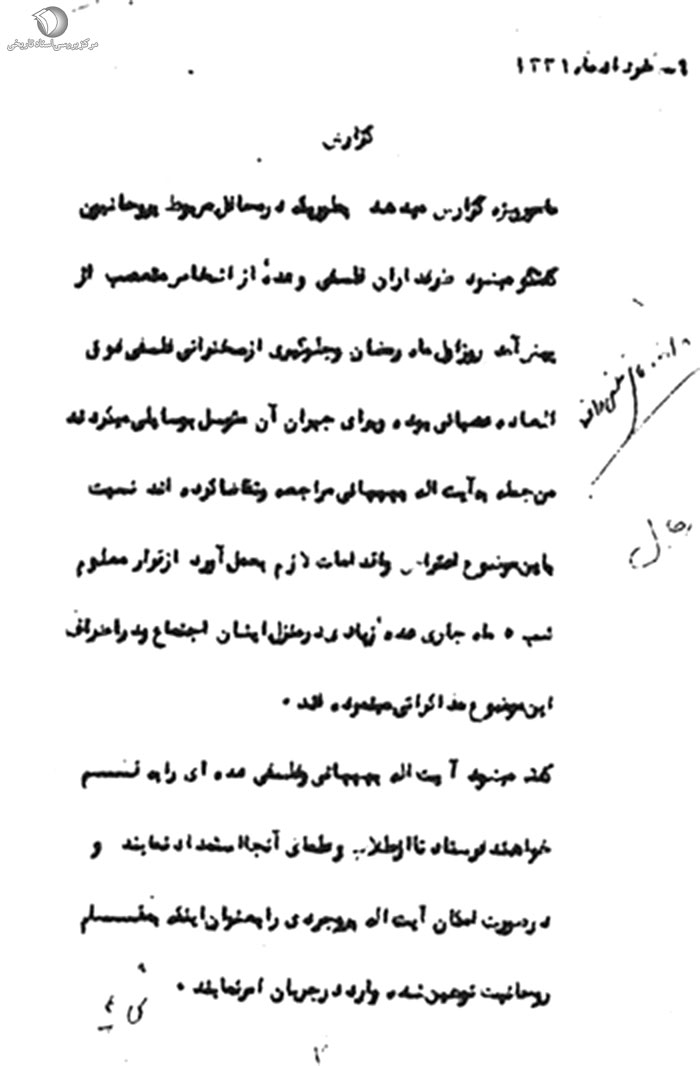 مرکز بررسی اسناد تاریخی
۹- خردادماه ۱۳۳۱
گزارش
مامور ویژه گزارش میدهد بطوریکه در محافل مربوط بروحانیون
گفتگو میشود طرفداران فلسفی و عدهٔ از اشخاص متعصب از
پیش آمد روز اول ماه رمضان و جلوگیری از سخنرانی فلسفی فوق
العاده عصبانی بوده و برای جبران آن متوسل بوسایلی میگردند
من جمله به آیت اله بهبهانی مراجعه و تقاضا کرده اند نسبت
باین موضوع اعتراض و اقدامات لازم بعمل آورد از قرار معلوم
شب ۵ ماه جاری عدهٔ زیادی در منزل ایشان اجتماع و در اطراف
این موضوع مذاکراتی مینموده اند .
گفته میشود آیت اله بهبهانی و فلسفی عده ای را به قم
خواهند فرستاد تا از طلاب و علمای آنجا استمداد نمایند و
در صورت امکان آیت اله بروجردی را بعنوان اینکه بمقام
روحانیت توهین شده وارد در جریان امر نمایند .